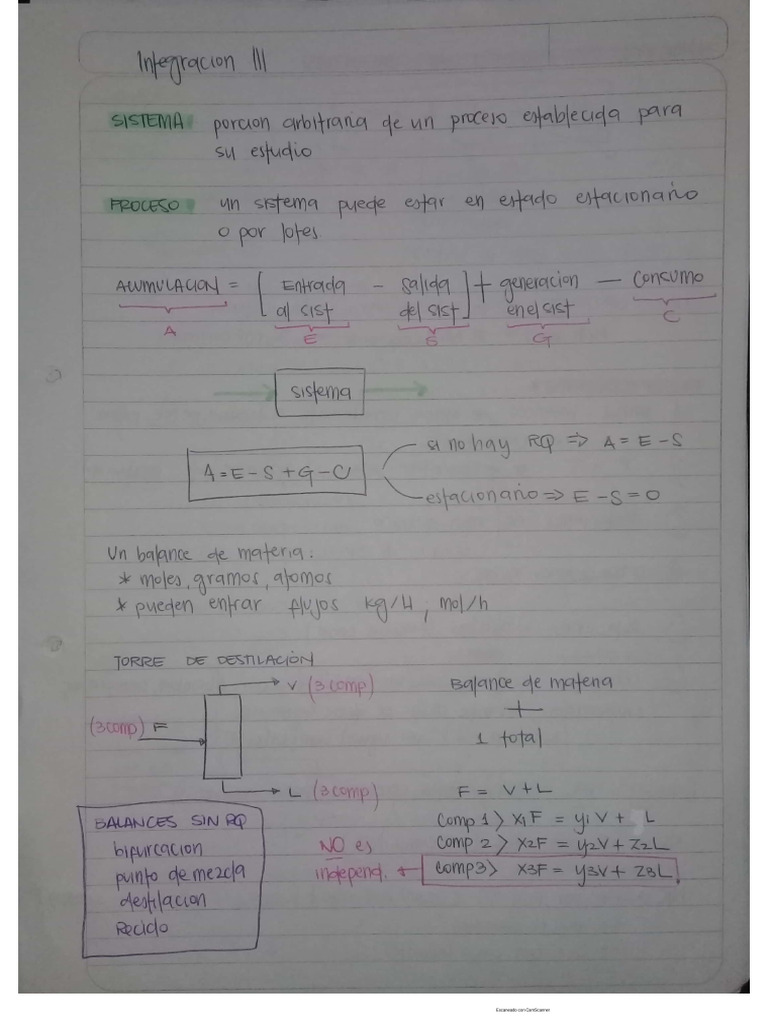 Integracion III
SISTEMA porcion arbitraria de un proceso establecida para
su estudio
PROCESO un sistema puede estar en estado estacionario
o por lotes
ACUMULACION = [ Entrada - salida ] + generacion — consumo
al sist del sist en el sist
A E S G C
sistema
A = E - S + G - C
si no hay RQ => A = E - S
estacionario => E - S = 0
Un balance de materia:
* moles, gramos, atomos
* pueden entrar flujos kg/H, mol/h
TORRE DE DESTILACIÓN
V (3 comp)
(3 comp) F
L (3 comp)
Balance de materia
+
1 total
F = V + L
Comp 1 > x1F = y1V + L
Comp 2 > x2F = y2V + z2L
Comp 3 > x3F = y3V + z3L
NO es
independ.
BALANCES SIN RQ
bifurcacion
punto de mezcla
destilacion
Reciclo
Escaneado con CamScanner